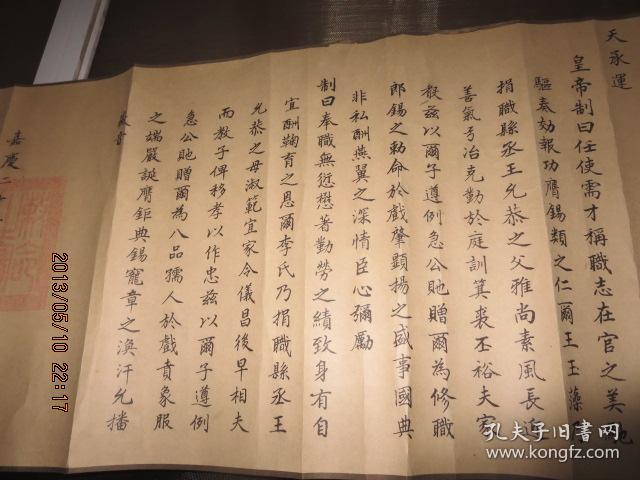 天承運
皇帝制曰任使需才稱職志在官之美馳
驅奏効報功膺錫類之仁爾王玉藻
捐職縣丞王允恭之父雅尚素風長迎
善氣弓治克勤於庭訓箕裘丕裕夫家
教茲以爾子遵例急公貤贈爾為修職
郎錫之勅命於戲肇顯揚之盛事國典
非私酬燕翼之深情臣心彌勵
制曰奉職無愆懋著勤勞之績致身有自
宜酬鞠育之恩爾李氏乃捐職縣丞王
允恭之母淑範宜家令儀昌後早相夫
而教子俾移孝以作忠茲以爾子遵例
急公貤贈爾為八品孺人於戲賁象服
之端嚴誕膺鉅典錫寵章之渙汗允播
嘉慶二十
2013/05/10 22:17
孔夫子旧书网
www.kongfz.com